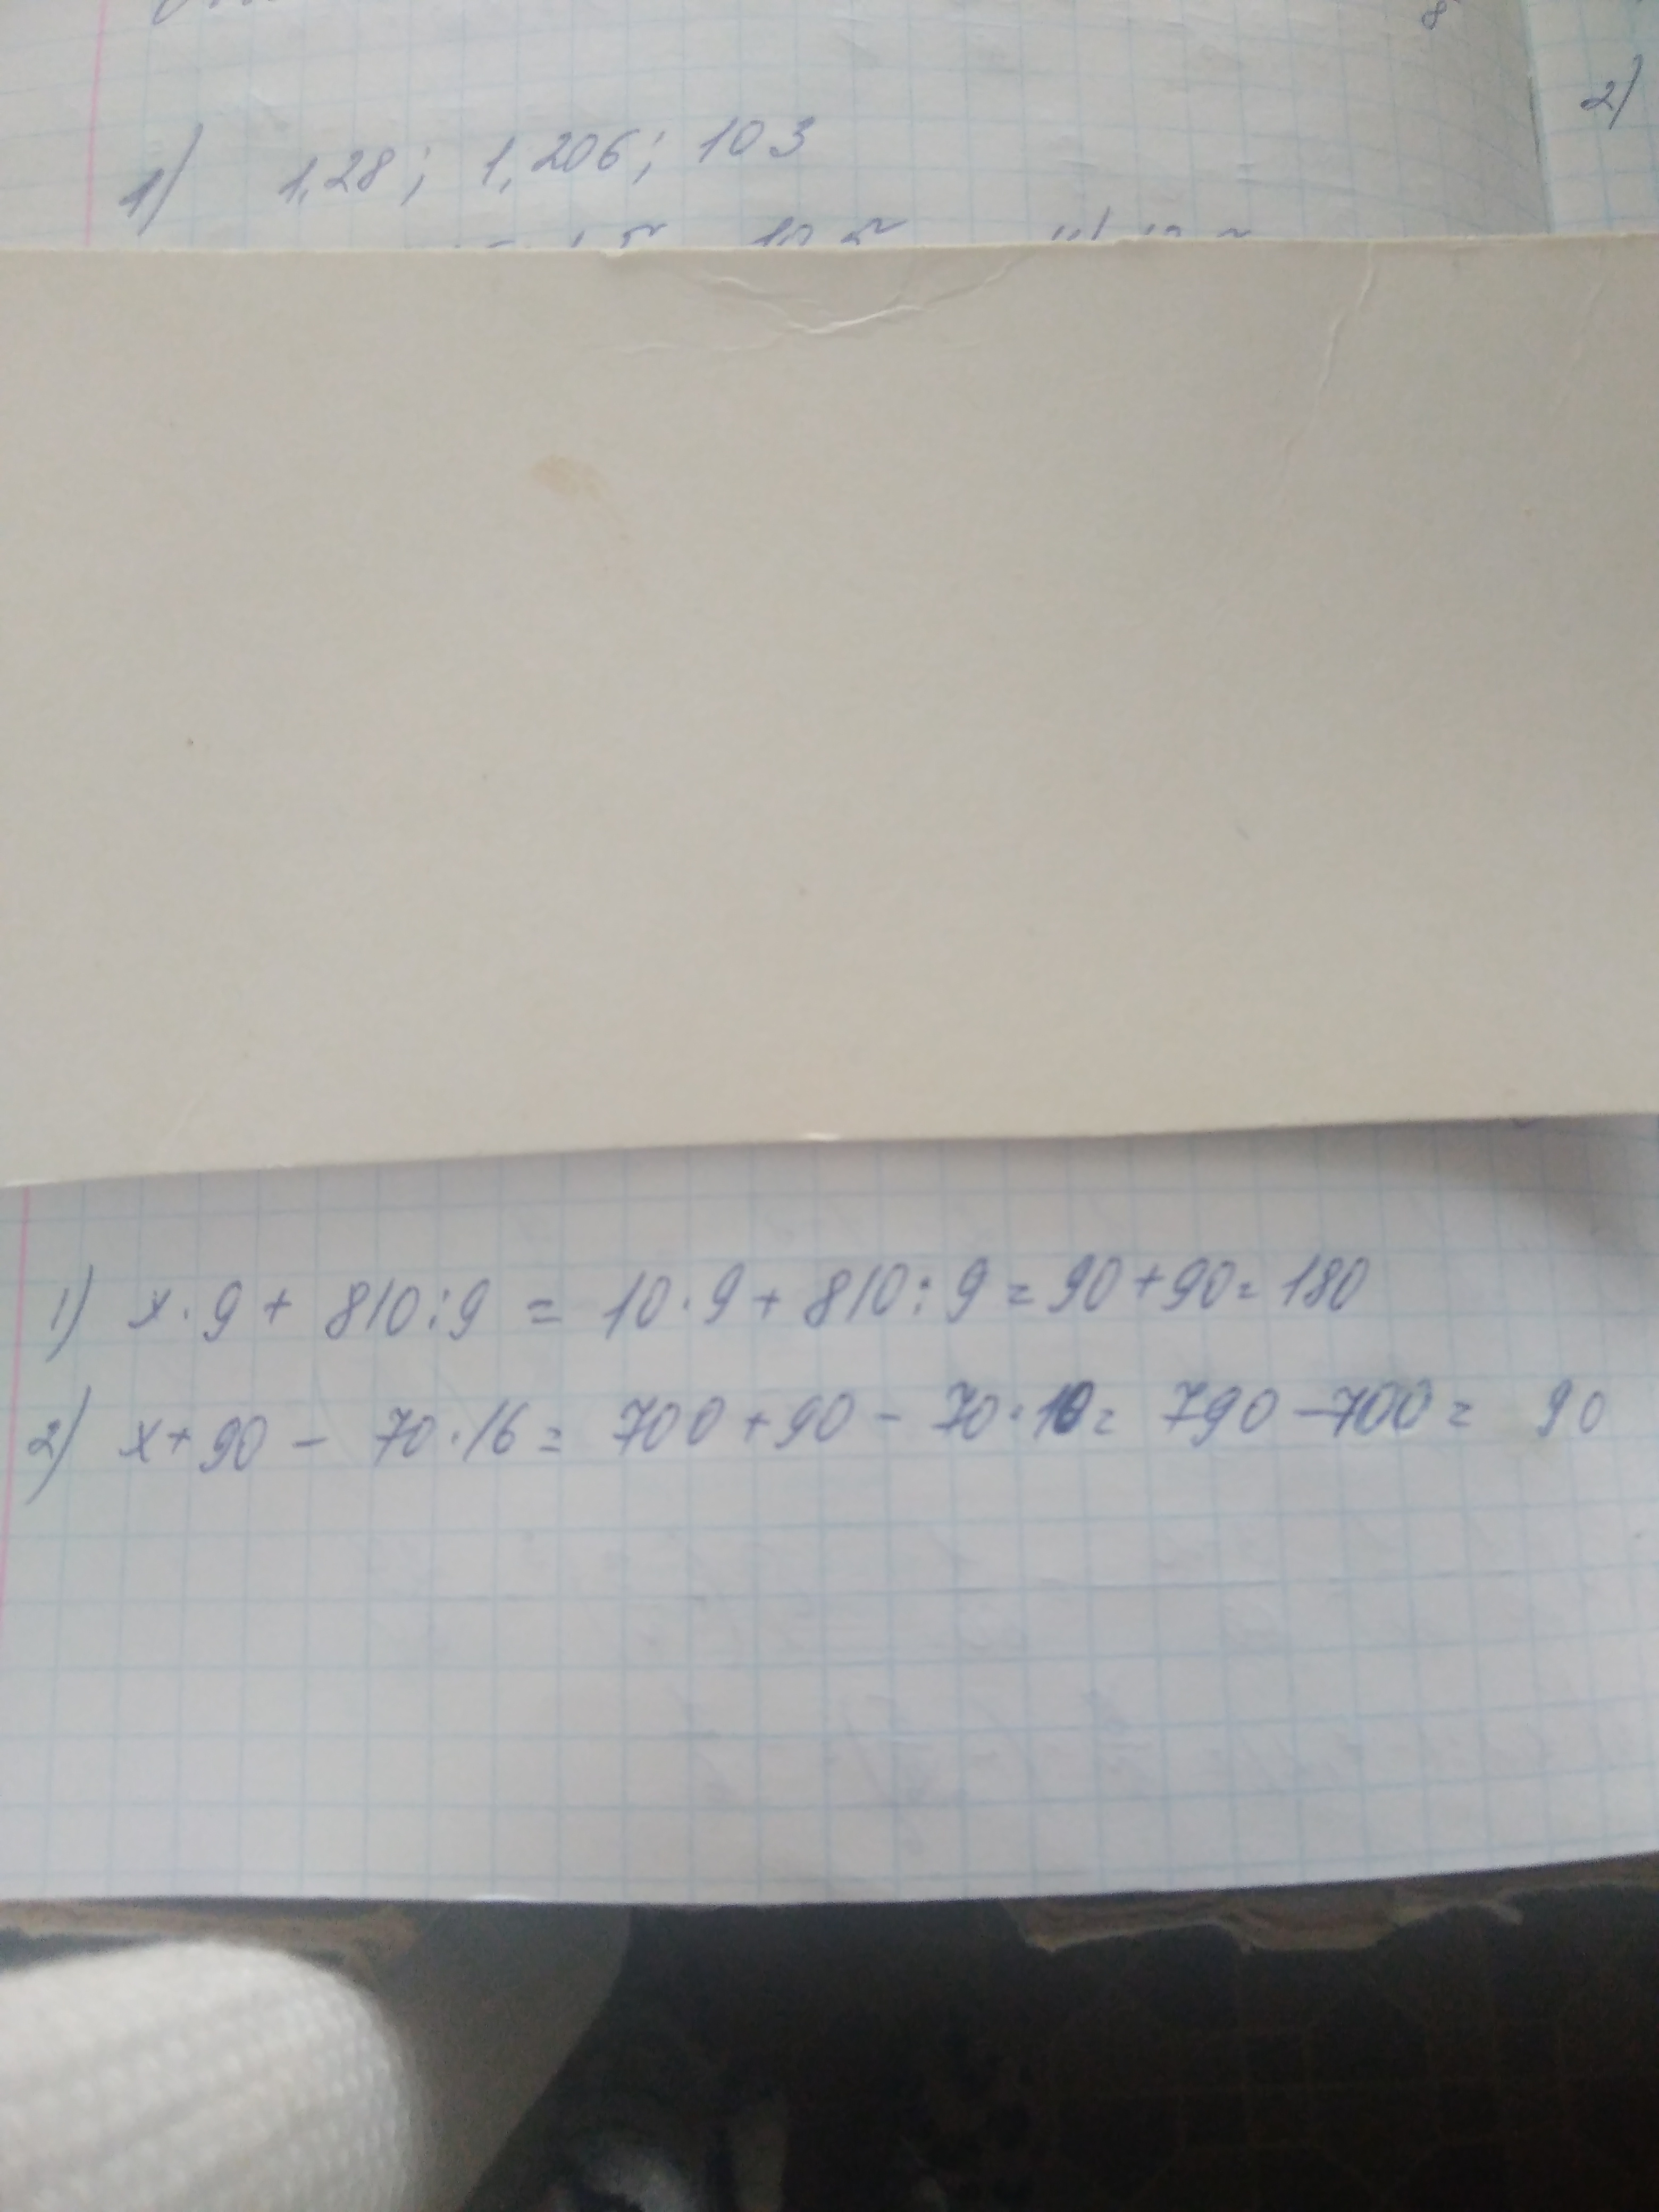 8
2)
1) 1,28; 1,206; 103
1) x·9+ 810:9 = 10·9+ 810:9 = 90+90= 180
2) x+90 - 70·16= 700+90- 70·10= 790-700= 90